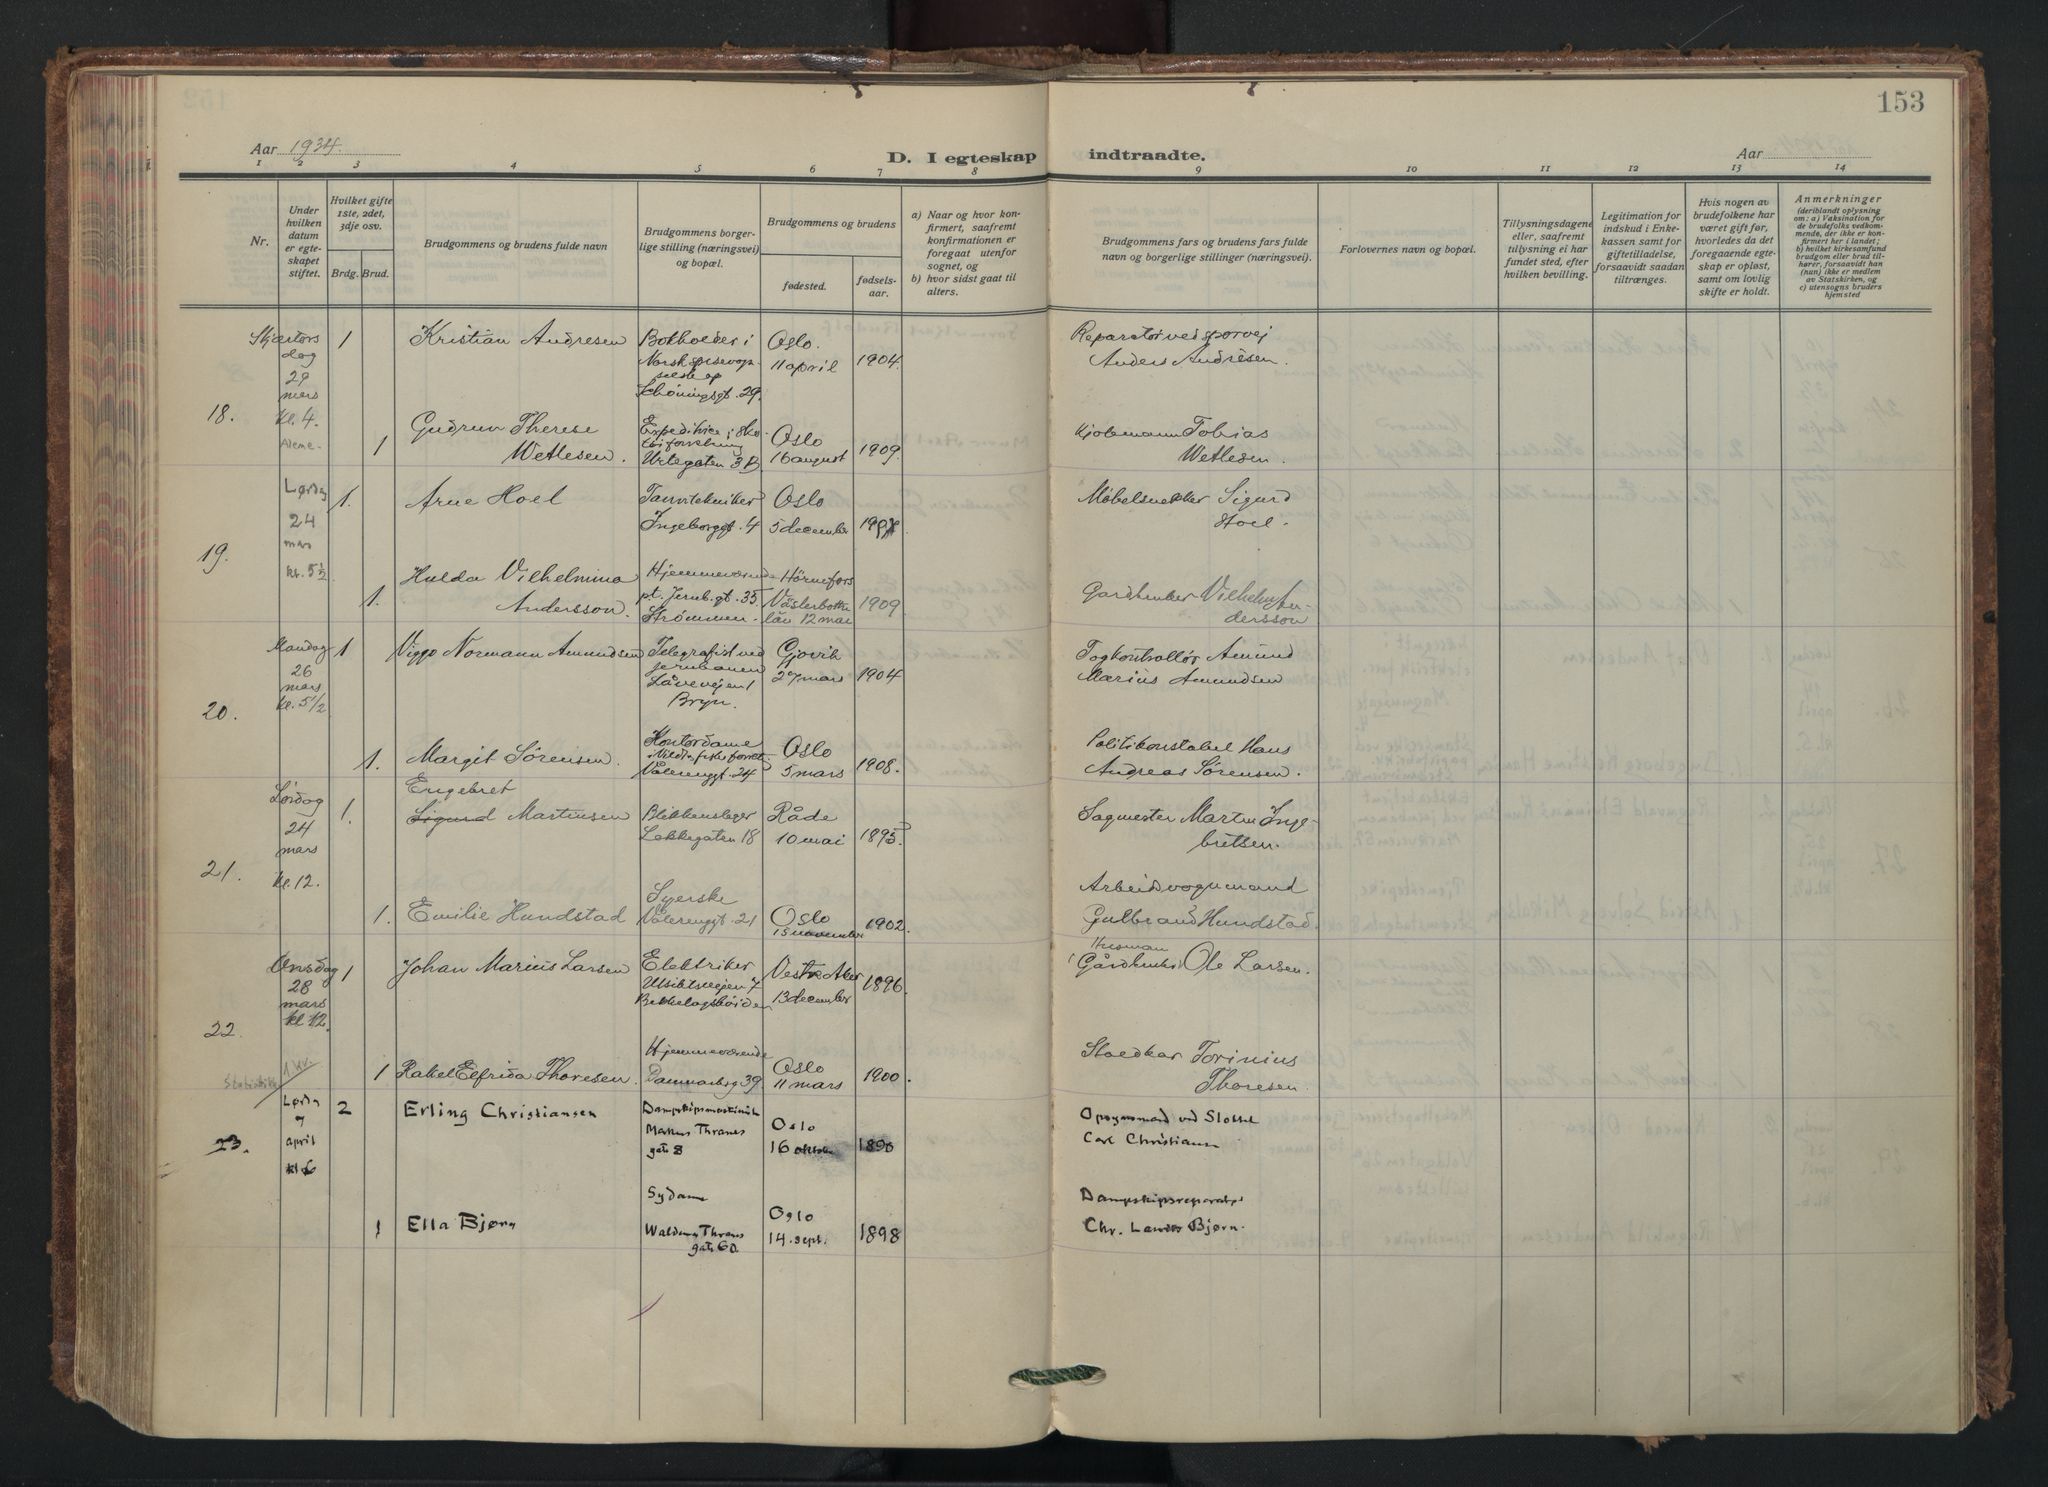 153
Aar 1934.
D. I egteskap indtraadte.
Aar
1 2 3 4 5 6 7 8 9 10 11 12 13 14
Nr.
Under hvilken datum er egteskapet stiftet.
Hvilket gifte 1ste, 2det, 3dje osv.
Brdg. Brud.
Brudgommens og brudens fulde navn
Brudgommens borgerlige stilling (næringsvei) og bopæl.
Brudgommens og brudens
fødested.
fødselsaar.
a) Naar og hvor konfirmert, saafremt konfirmationen er foregaat utenfor sognet, og
b) hvor sidst gaat til alters.
Brudgommens fars og brudens fars fulde navn og borgerlige stillinger (næringsvei).
Forlovernes navn og bopæl.
Tillysningsdagene eller, saafremt tillysning ei har fundet sted, efter hvilken bevilling.
Legitimation for indskud i Enkekassen samt for giftetilladelse, forsaavidt saadan tiltrænges.
Hvis nogen av brudefolkene har været gift før, hvorledes da det foregaaende egteskap er opløst, samt om lovlig skifte er holdt.
Anmerkninger
(deriblandt oplysning om: a) Vaksination for de brudefolks vedkommende, der ikke er konfirmert her i landet; b) hvilket kirkesamfund brudgom eller brud tilhører, forsaavidt han (hun) ikke er medlem av Statskirken, og c) utensogns bruders hjemsted
18.
Skjærtorsdag
29
mars
Kl. 4.
1
Kristian Andresen
Bokholder i
Schøningsgt. 29.
Oslo.
11 april
1904.
Reparatør ved sporvei
Anders Andresen.
1
Gudrun Therese
Wetlesen.
Urtegaten 3B
Oslo
16 august
1909.
Tobias
Wetlesen.
19.
Lørdag
24
mars
kl. 5½
1.
Arne Hoel
Tanntekniker
Ingeborggt. 4
Oslo
5 december
Møbelsnekker Sigurd
Hoel.
1.
Hulda Vilhelmina
Andersson.
Hjemmeværende
pt. Jernb.gt. 35
Strømmen.
Hörnefors
Västerbotten
län 12 mai
1909.
Gårdbruker Vilhelm An-
dersson
20.
Mandag
26
mars
kl. 5½
1
Viggo Normann Amundsen
Telegrafist ved
jernbanen
Bryn.
Gjøvik
27 mars
1904
Togkontrollør Amund
Marius Amundsen
1.
Margit Sørensen.
Kontordame
Vålerenggt. 24
Oslo
5 mars
1908.
Politikonstabel Hans
Andreas Sørensen.
21.
Lørdag
24
mars
kl. 12.
1.
Engebret
Sigurd Martinsen
Blikkenslager
Lakkegaten 18
Råde
10 mai
1895
Sagmester Martin Inge-
bretsen.
1.
Emilie Hundstad
Syerske
Vålerenggt. 21
Oslo
15 november
1902.
Arbeidsvognmand
Gulbrand Hundstad.
22.
Onsdag
28
mars
kl 12.
1
Johan Marius Larsen
Elektriker
Utsiktsveien 7
Bekkelagshøiden
Vestre Aker
13 december
1896.
Husman
Gårdbruker Ole Larsen.
1
Rakel Elfrida Thoresen.
Hjemmeværende
Danmarksg 39
Oslo
11 mars
1900.
Torinius
Thoresen.
23.
Lørdag
april
kl 6
2
Erling Christiansen
Dampskipsmaskinist
Markus Thranes
gate 8
Oslo
16 oktober
1890
Opsynsmand ved Slottet
Carl Christiansen
1
Ella Bjørn
Sydame
Waldemar Thranes
gate 60.
Oslo
14. sept.
1898
Dampskipsreparatør
Chr. Bjørn.